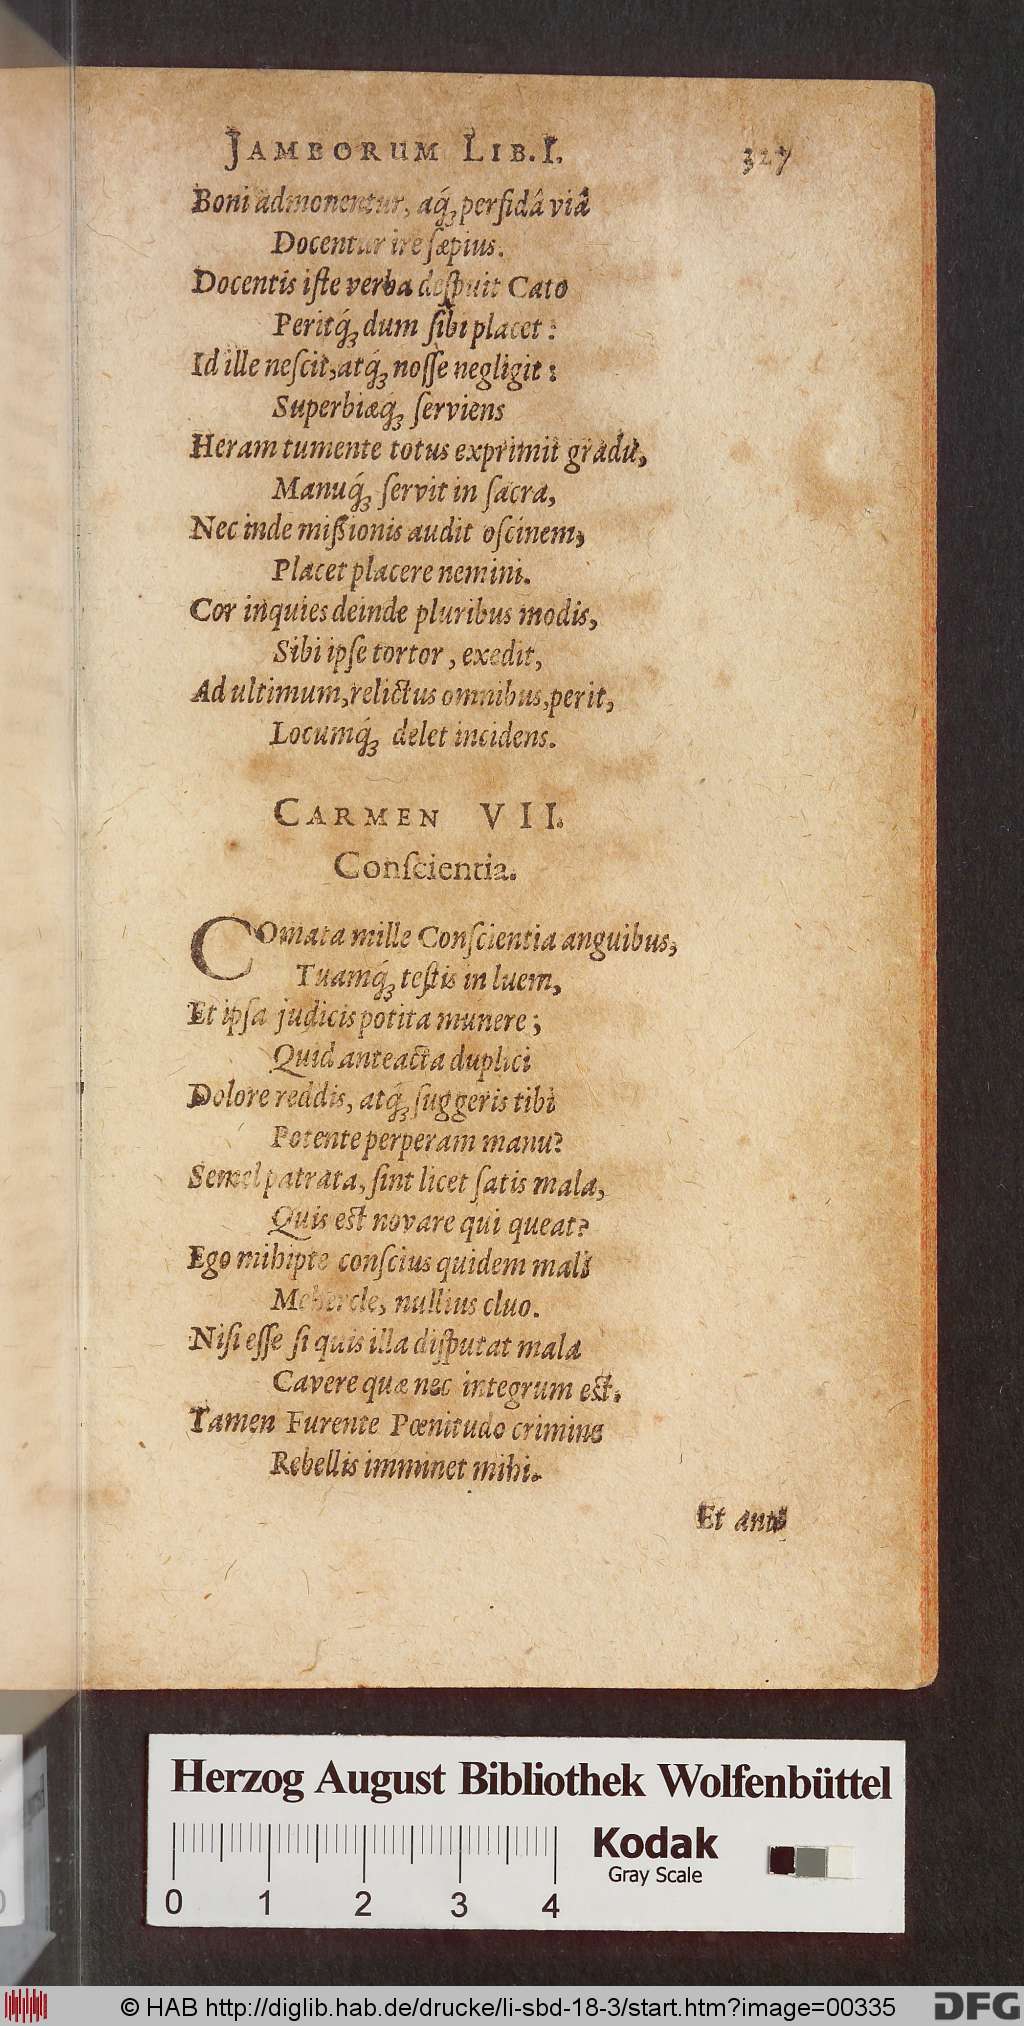 JAMBORUM LIB. I. 327
Boni admonentur, aq́ꝫ perfidâ viâ
Docentur ire ſæpius.
Docentis iſte verba deſpuit Cato
Peritq́ꝫ dum ſibi placet:
Id ille neſcit, atq́ꝫ noſſe negligit:
Superbiæq́ꝫ ſerviens
Heram tumente totus exprimit gradu,
Manuq́ꝫ ſervit in ſacra,
Nec inde miſsionis audit oſcinem,
Placet placere nemini.
Cor inquies deinde pluribus modis,
Sibi ipſe tortor, exedit,
Ad ultimum, relictus omnibus, perit,
Locumq́ꝫ delet incidens.
CARMEN VII.
Conſcientia.
COmata mille Conſcientia anguibus,
Tuamq́ꝫ teſtis in luem,
Et ipſa judicis potita munere;
Quid anteacta duplici
Dolore reddis, atq́ꝫ ſuggeris tibi
Potente perperam manu?
Semel patrata, ſint licet ſatis mala,
Quis est novare qui queat?
Ego mihipte conſcius quidem mali
Mehercle, nullius cluo.
Niſi eſſe ſi quis illa diſputat mala
Cavere quæ nec integrum est.
Tamen Furente Pœnitudo crimine
Rebellis imminet mihi.
Et ante
Herzog August Bibliothek Wolfenbüttel
0 1 2 3 4
Kodak
Gray Scale
© HAB http://diglib.hab.de/drucke/li-sbd-18-3/start.htm?image=00335
DFG